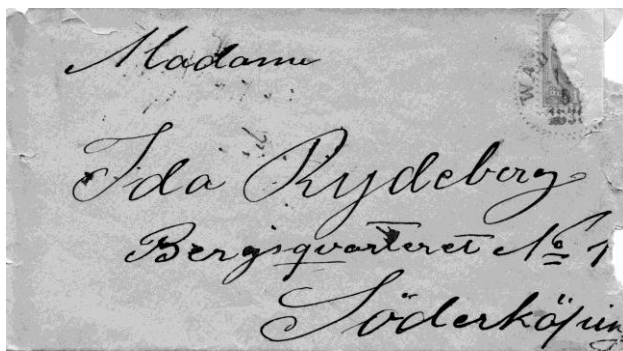 Madame
Ida Rydeberg
Bergsqvarteret No 1
Söderköping